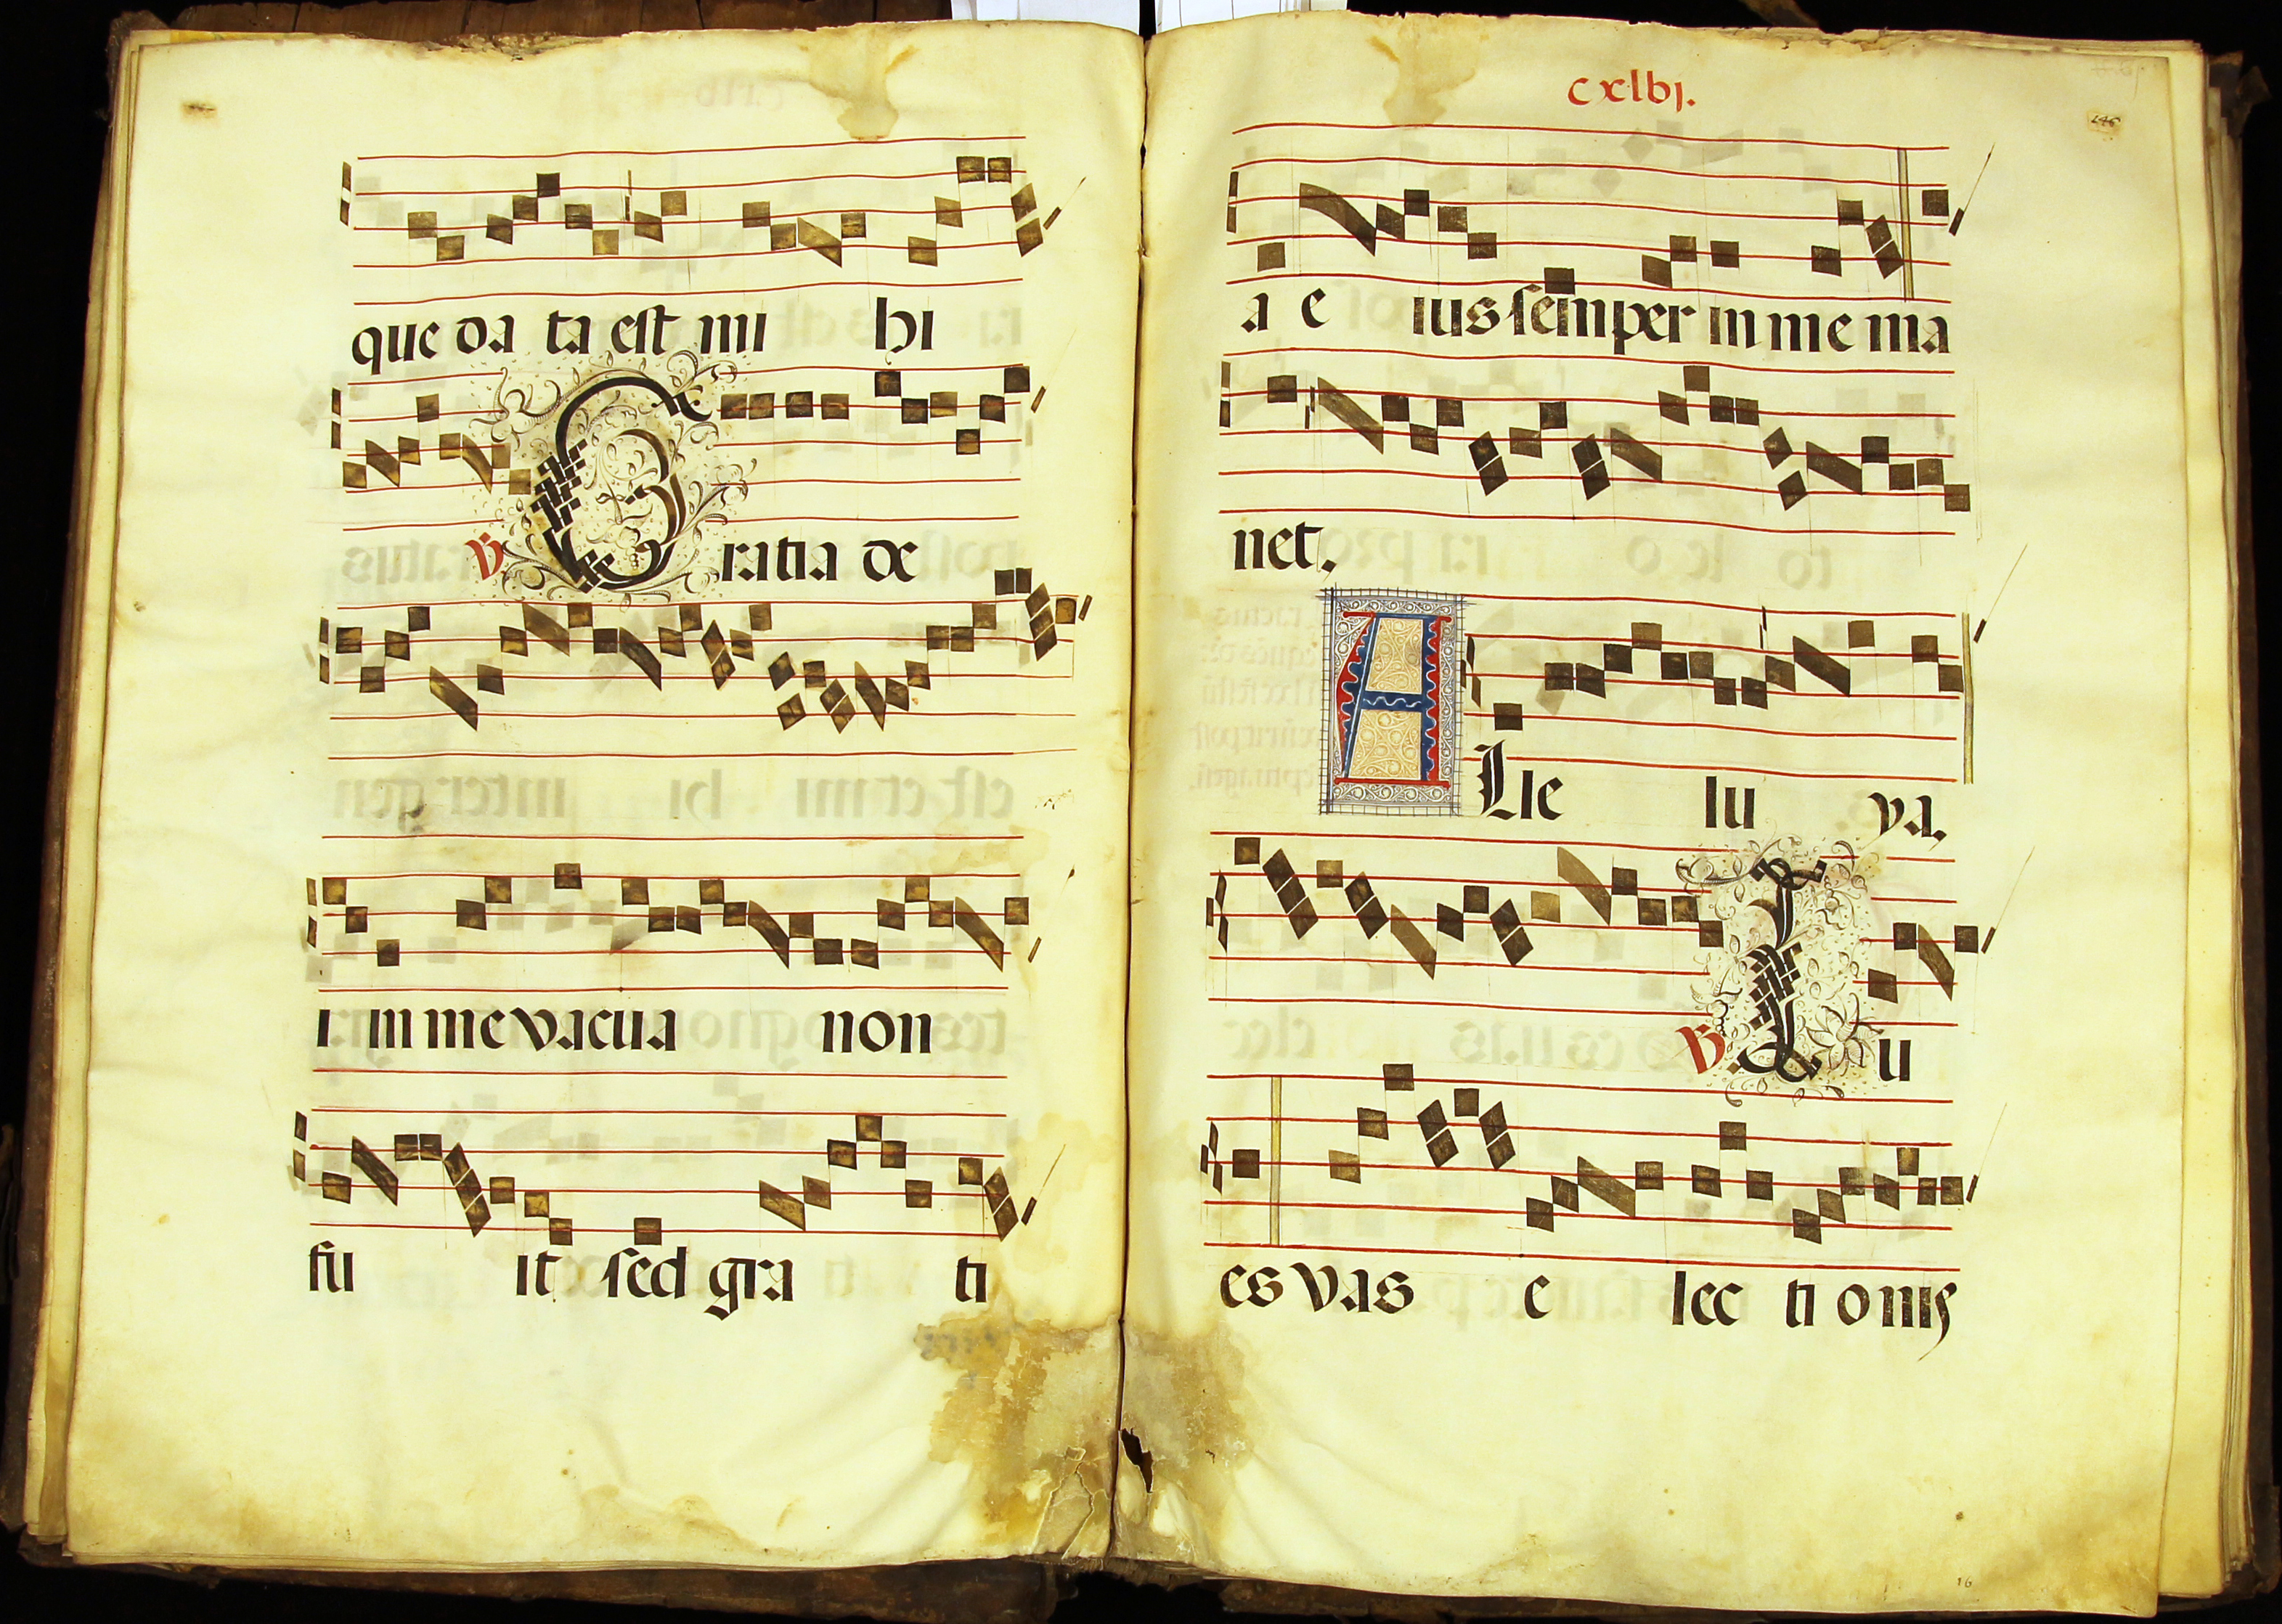 que da ta est mi hi
℣ Gratia de
i in me vacua non
fu it sed gra ti
cxlbj.
146
a e ius semper in me ma
net.
ALle lu ya.
℣. Tu
es vas e lec ti onis
16